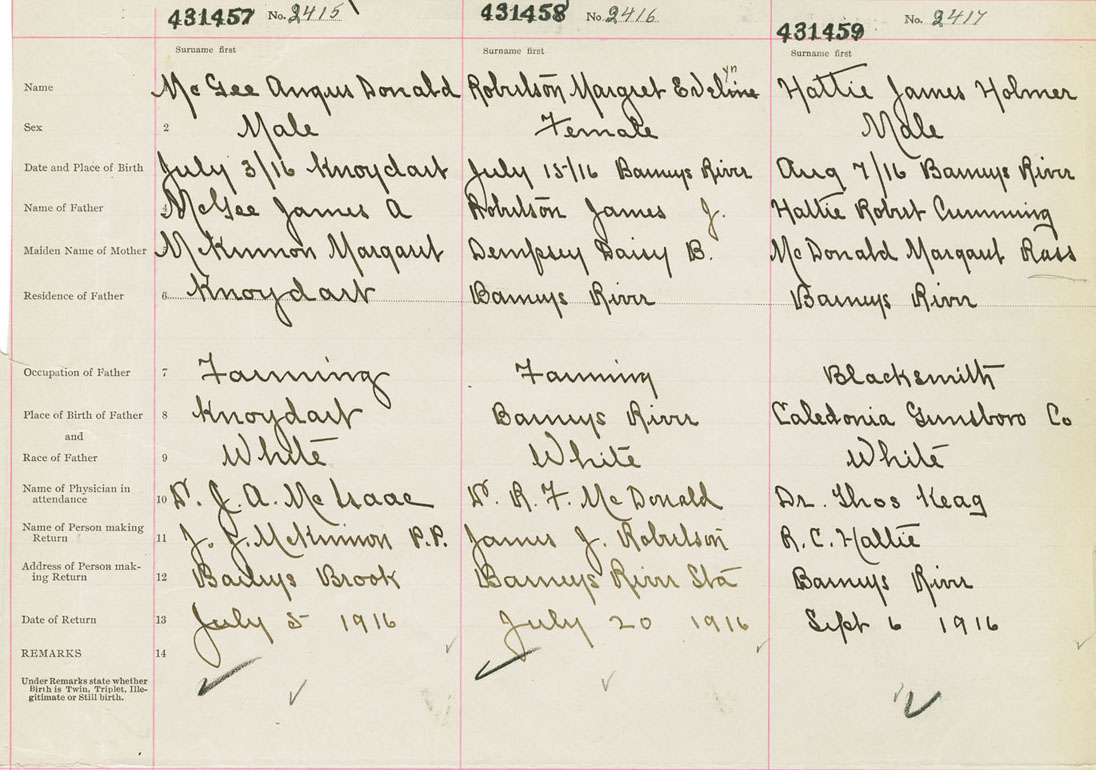 431457 No. 2415 431458 No. 2416 431459 No. 2417
Surname first Surname first Surname first
Name McGee Angus Donald Robertson Margret Evelyne Hattie James Holmer
Sex 2 Male Female Male
Date and Place of Birth July 3/16 Knoydart July 15/16 Barneys River Aug 7/16 Barneys River
Name of Father 4 McGee James A Robertson James J. Hattie Robert Cumming
Maiden Name of Mother McKinnon Margaret Dempsey Daisy B. McDonald Margaret Ross
Residence of Father 6 Knoydart Barneys River Barneys River
Occupation of Father 7 Farming Farming Blacksmith
Place of Birth of Father 8 Knoydart Barneys River Caledonia Gunsboro Co
and
Race of Father 9 White White White
Name of Physician in
attendance 10 Dr. J. A. McIsaac Dr. R. F. McDonald Dr. Thos Keag
Name of Person making
Return 11 J. J. McKinnon P.P. James J. Robertson R. C. Hattie
Address of Person mak-
ing Return 12 Baileys Brook Barneys River Sta Barneys River
Date of Return 13 July 5 1916 July 20 1916 Sept 6 1916
REMARKS 14
Under Remarks state whether
Birth is Twin, Triplet, Ille-
gitimate or Still birth.